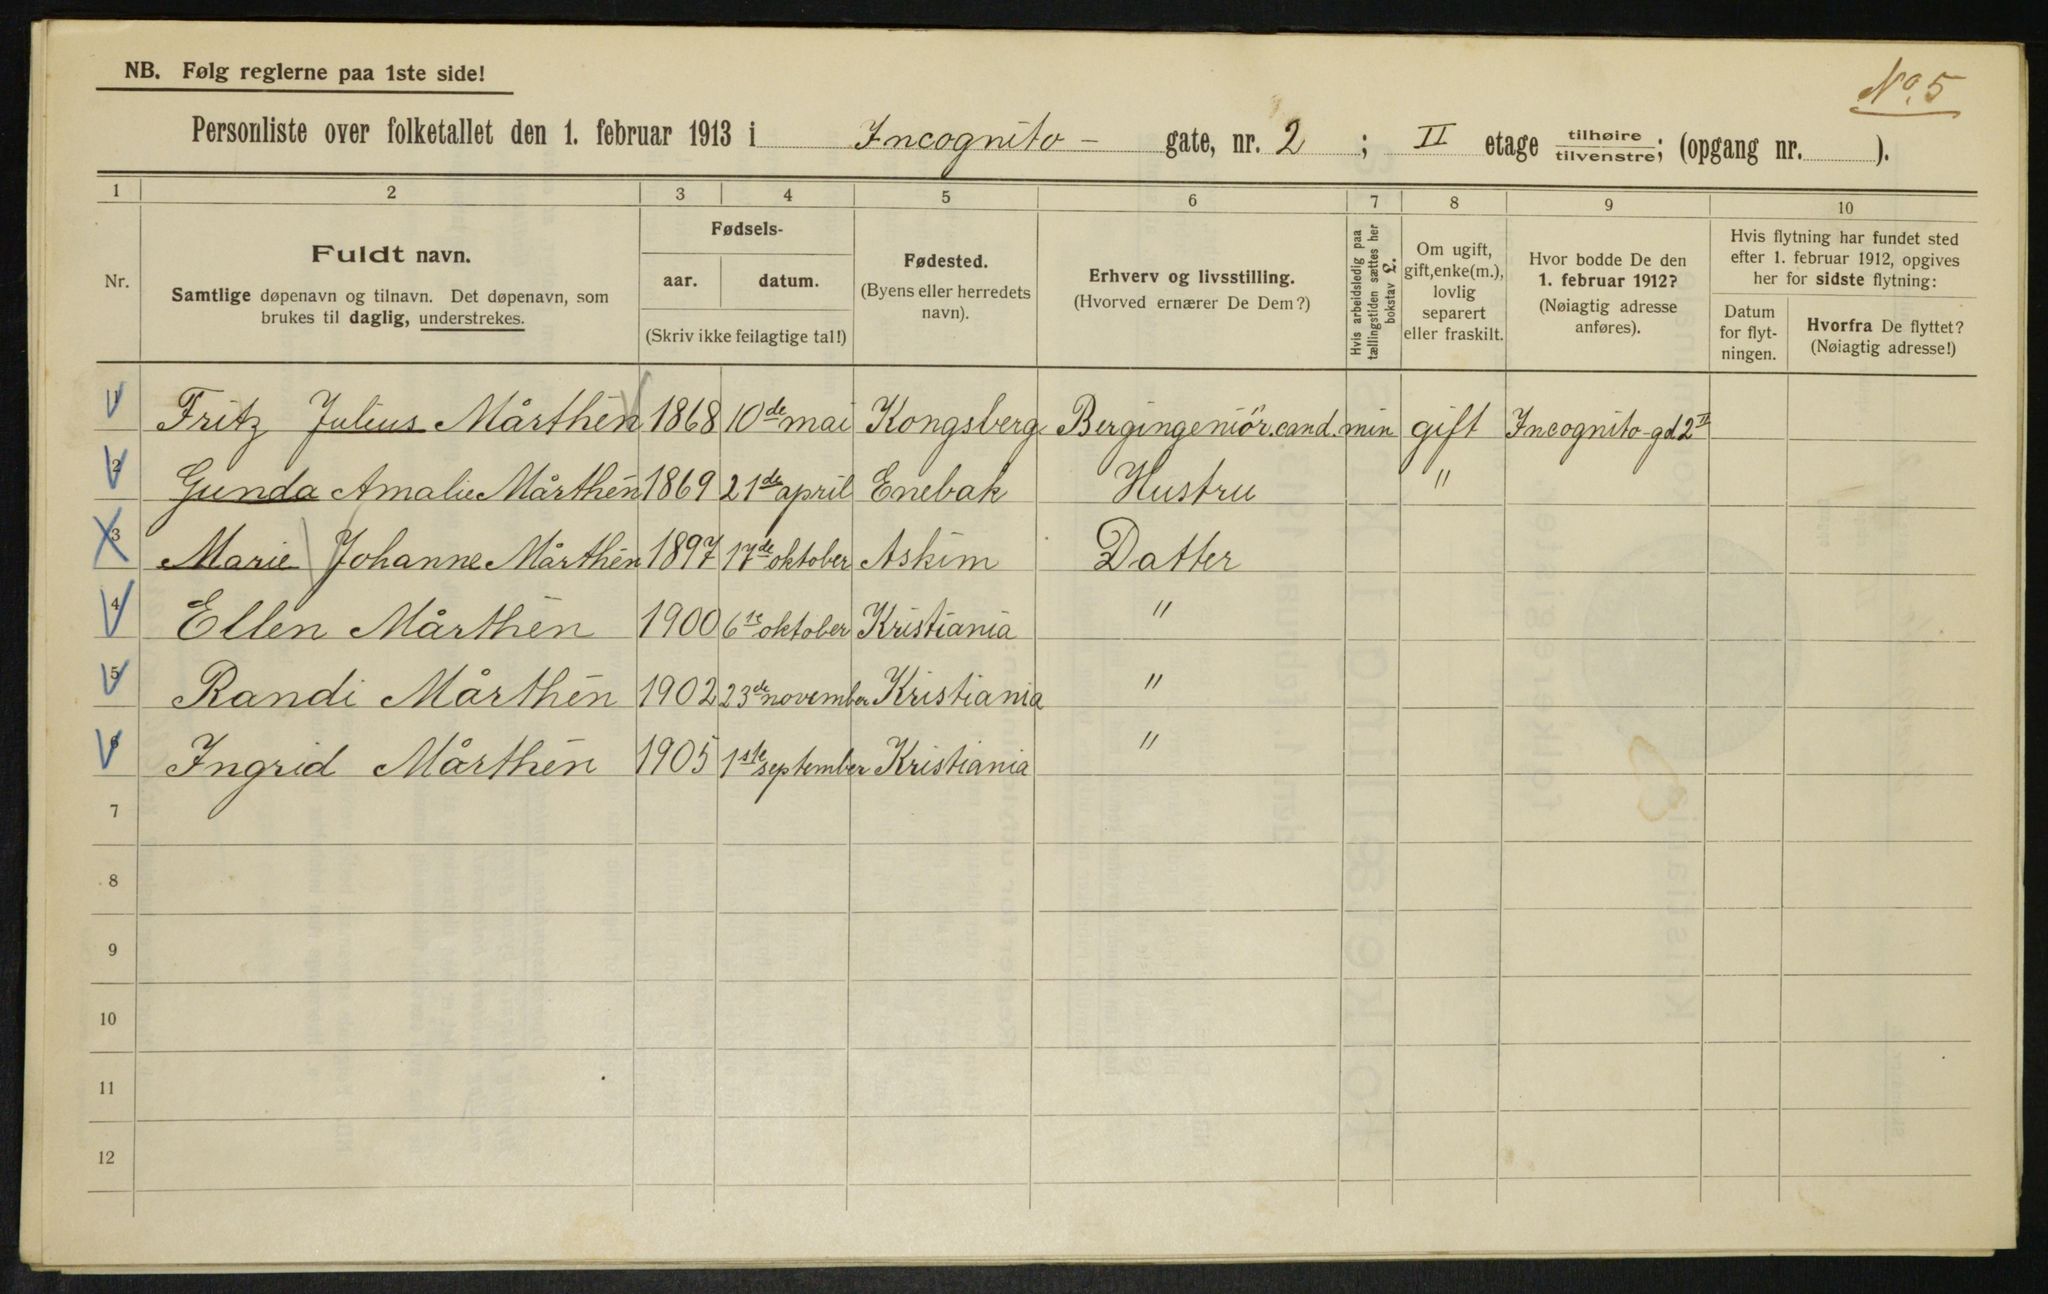 NB. Følg reglerne paa 1ste side!
No. 5
Personliste over folketallet den 1. februar 1913 i Incognito - gate, nr. 2 ; II etage tilhøire/tilvenstre; (opgang nr. ).
1 2 3 4 5 6 7 8 9 10
Nr.
Fuldt navn.
Samtlige døpenavn og tilnavn. Det døpenavn, som
brukes til daglig, understrekes.
Fødsels-
aar. datum.
(Skriv ikke feilagtige tal!)
Fødested.
(Byens eller herredets
navn).
Erhverv og livsstilling.
(Hvorved ernærer De Dem?)
Hvis arbeidsledig paa
tællingstiden sættes her
bokstav L.
Om ugift,
gift, enke(m.),
lovlig
separert
eller fraskilt.
Hvor bodde De den
1. februar 1912?
(Nøiagtig adresse
anføres).
Hvis flytning har fundet sted
efter 1. februar 1912, opgives
her for sidste flytning:
Datum
for flyt-
ningen.
Hvorfra De flyttet?
(Nøiagtig adresse!)
1 Fritz Julius Mårthén 1868 10de mai Kongsberg Bergingeniör. cand. min gift Incognito-gd 2 II
2 Gunda Amalie Mårthén 1869 21de april Enebak Hustru "
3 Marie Johanne Mårthén 1897 17de oktober Askim Datter
4 Ellen Mårthén 1900 6te oktober Kristiania "
5 Randi Mårthén 1902 23de november Kristiania "
6 Ingrid Mårthén 1905 1ste september Kristiania "
7
8
9
10
11
12